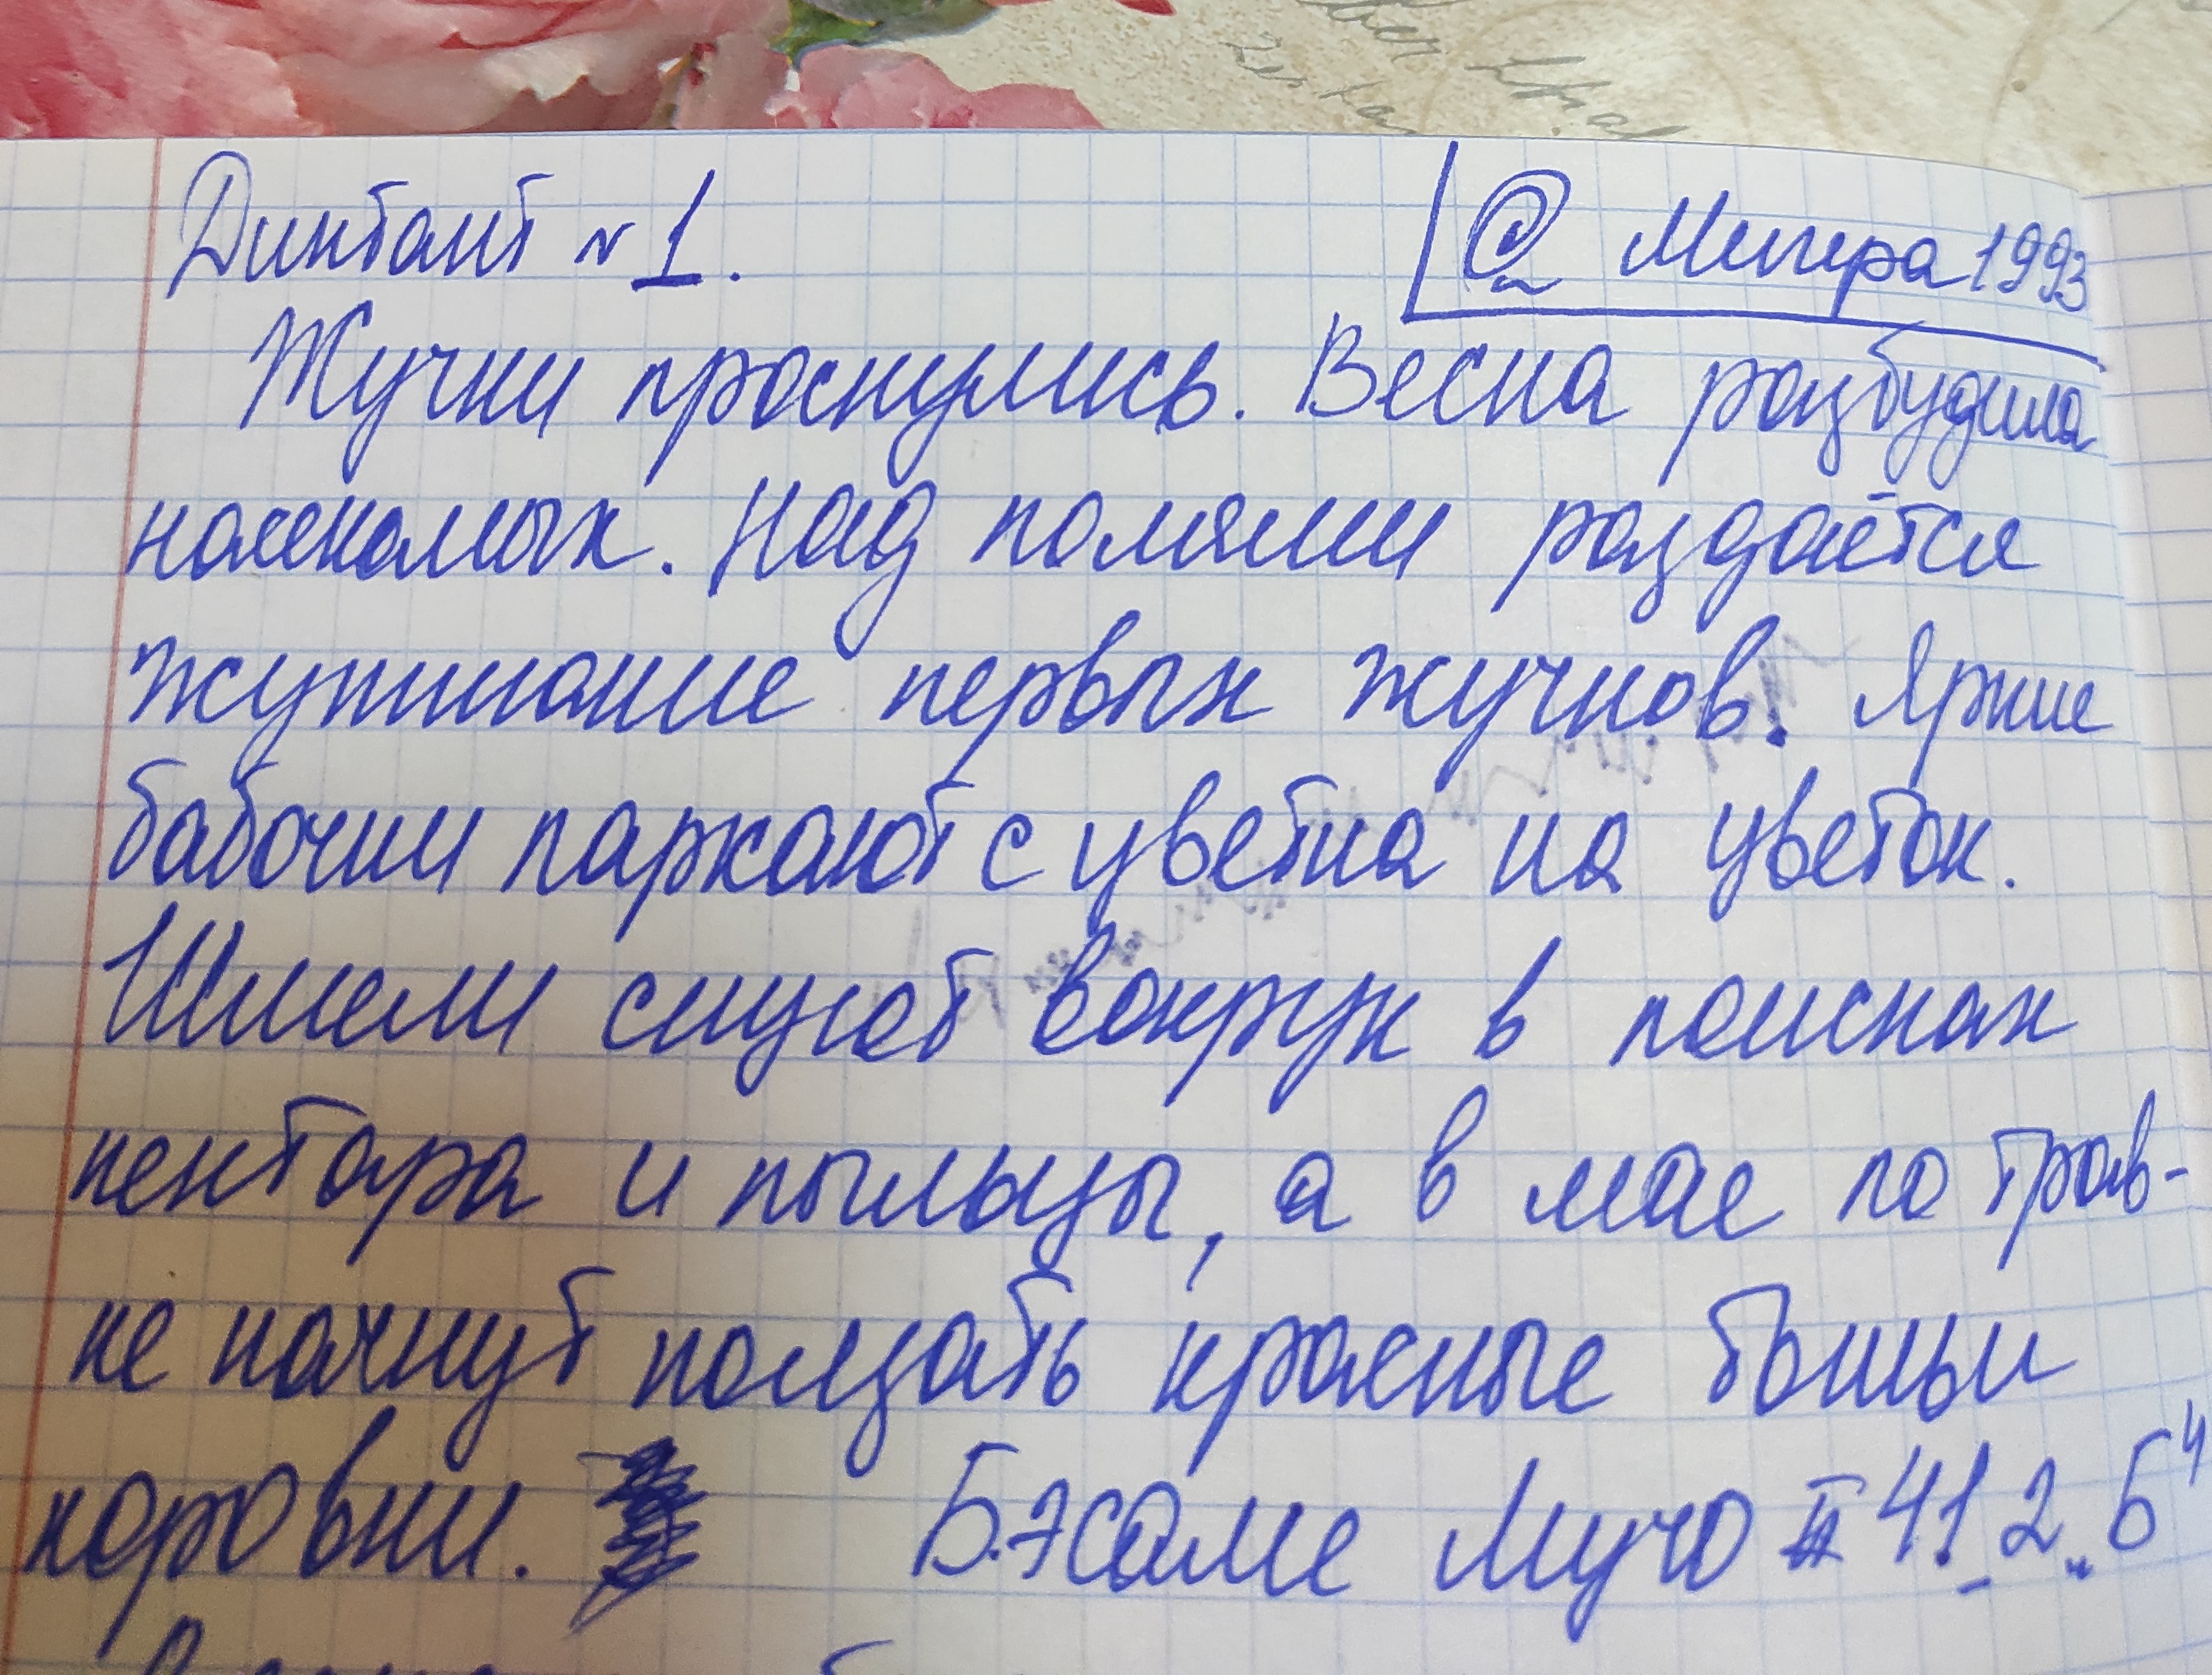 Диктант № 1.
@ Мигера 1993
Жучки праснулись. Весна разбудила
насекомых. Над полями раздаётся
жужжание первых жучков. Яркие
бабочки паркают с цветка на цветок.
Шмели снуют вокрук в поисках
нектара и пыльцы, а в мае по трав-
ке начнут ползать красные божьи
коровки. Бэсаме Мучо 41 2 Б 4